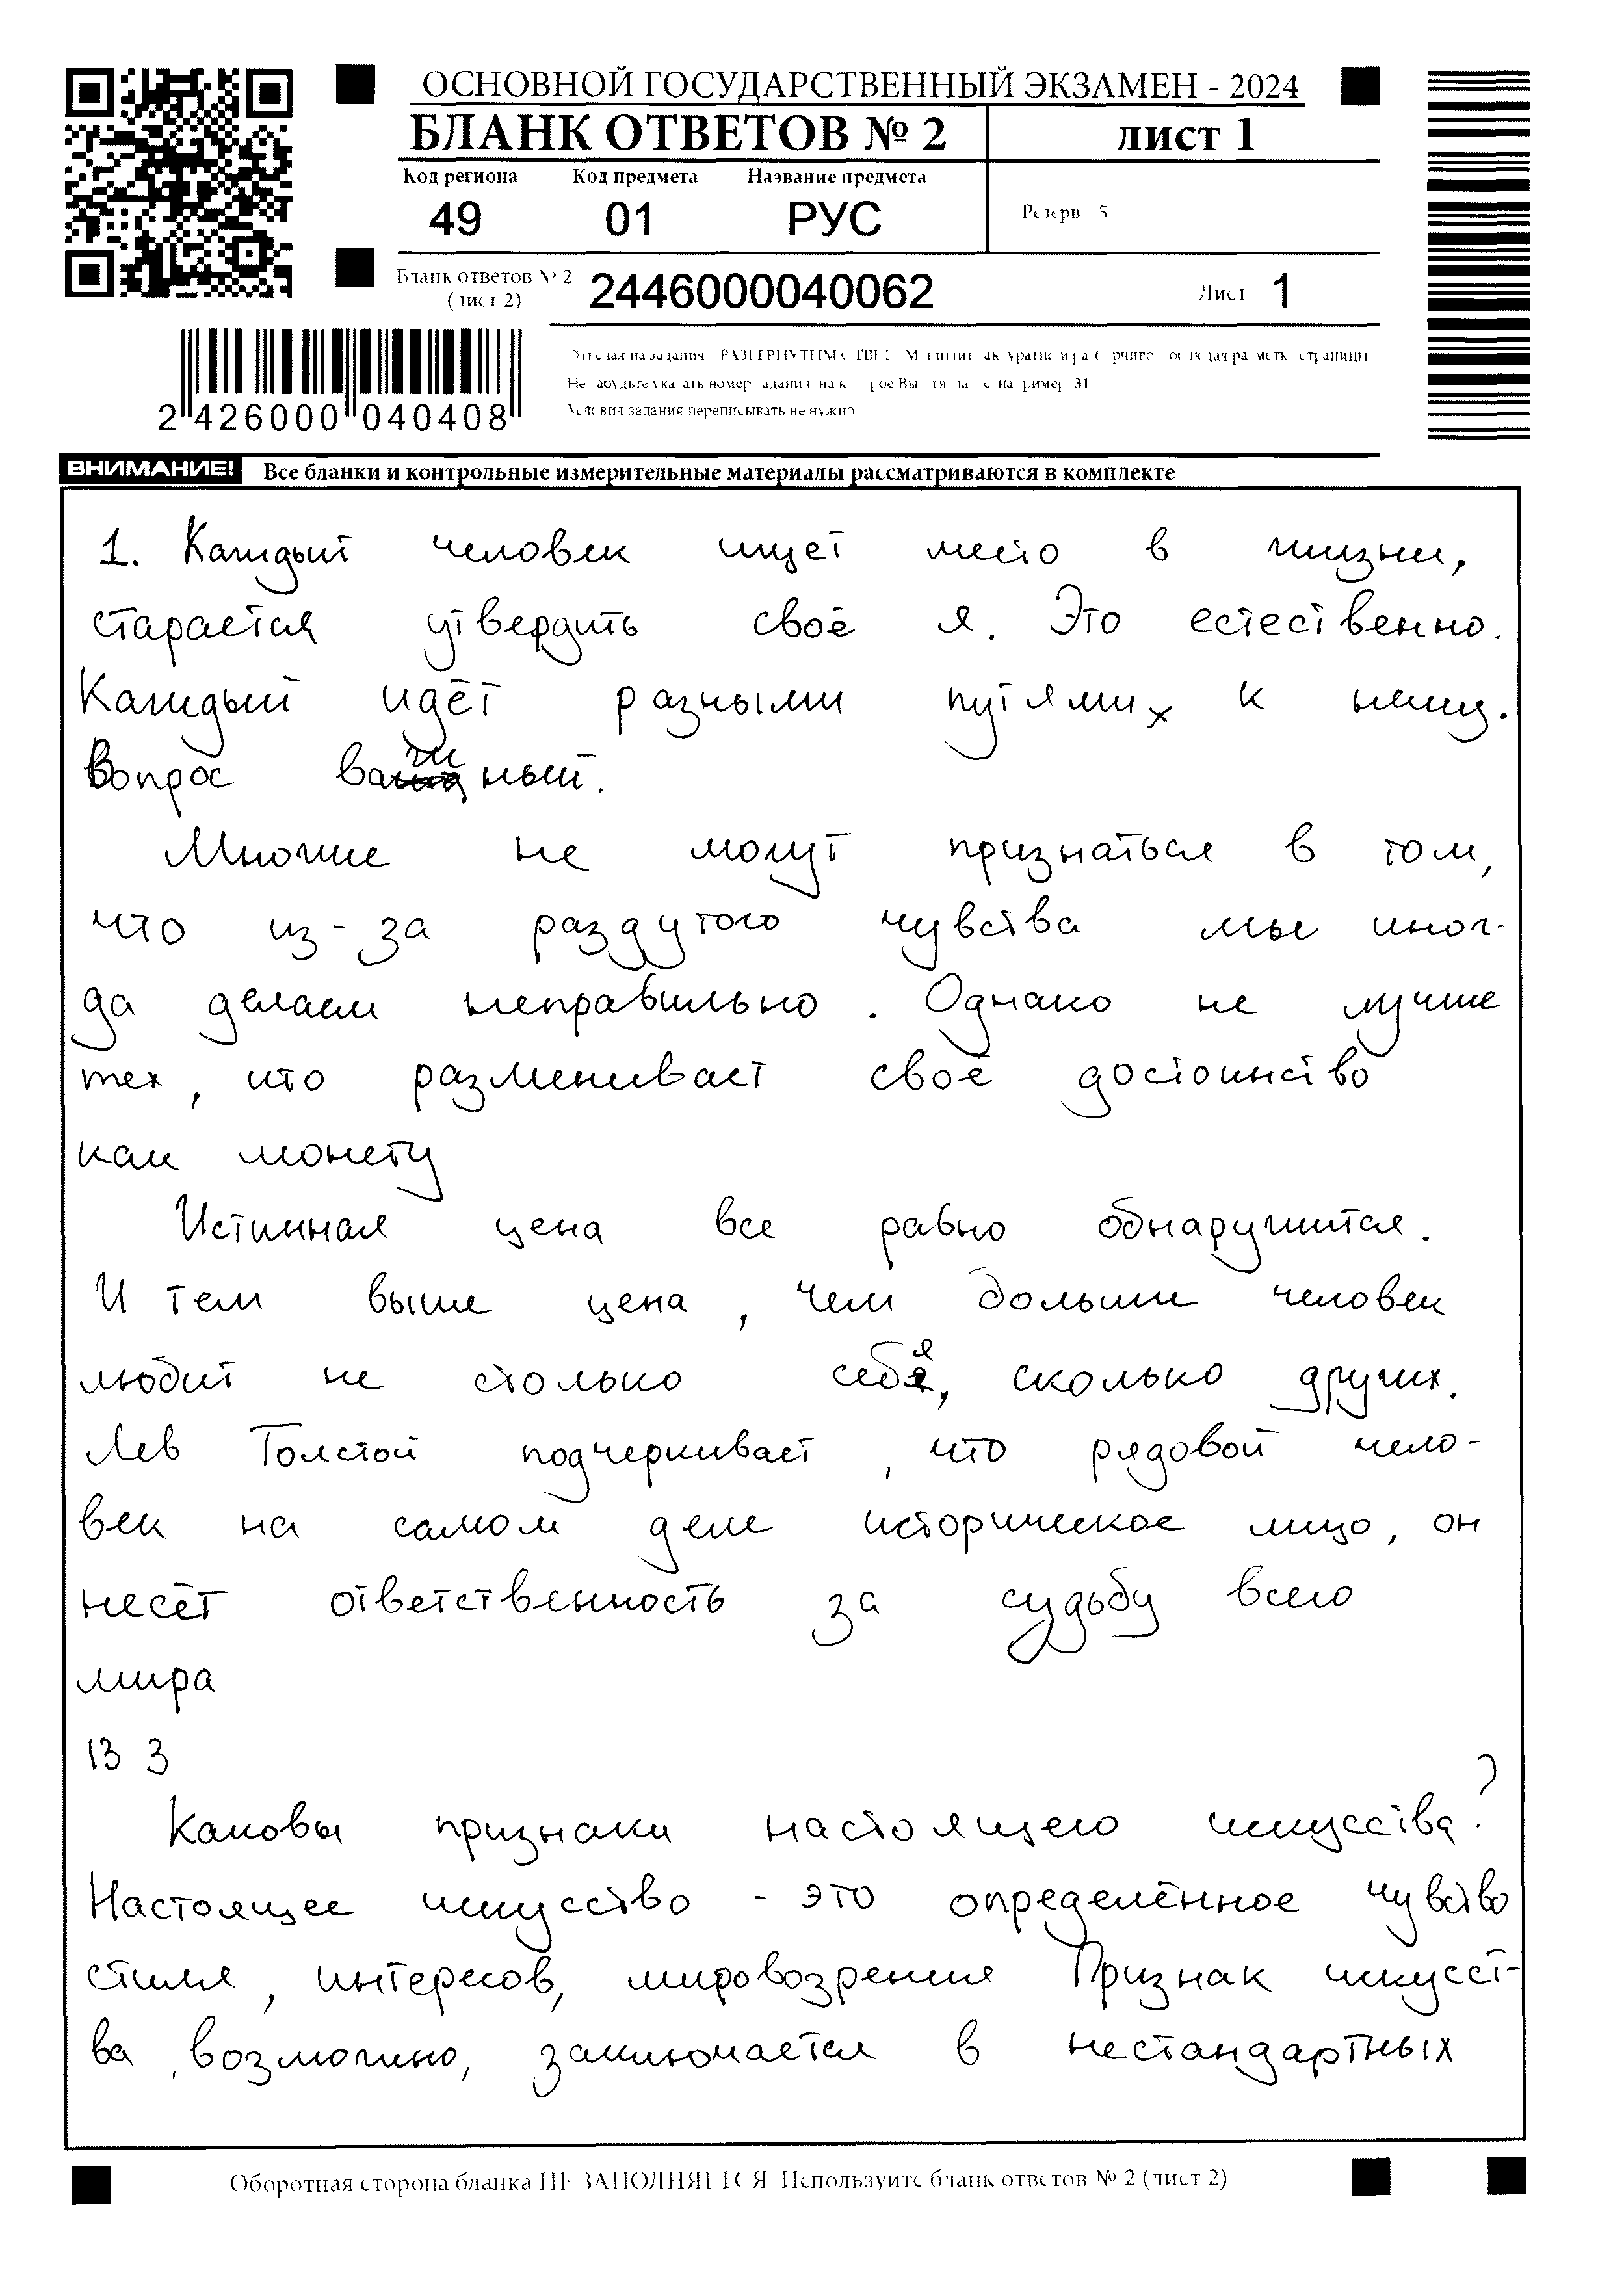 ОСНОВНОЙ ГОСУДАРСТВЕННЫЙ ЭКЗАМЕН - 2024
БЛАНК ОТВЕТОВ № 2 лист 1
Код региона Код предмета Название предмета
49 01 РУС Резерв 5
Бланк ответов № 2 (лист 2) 2446000040062 Лист 1
2 426000 040408
Условия задания переписывать не нужно
ВНИМАНИЕ! Все бланки и контрольные измерительные материалы рассматриваются в комплекте
1. Каждый человек ищет место в жизни,
старается утвердить своё я. Это естественно.
Каждый идёт разными путями к нему.
Вопрос важный.
Многие не могут признаться в том,
что из-за раздутого чувства мы иног-
да делаем неправильно. Однако не лучше
тех, кто разменивает своё достоинство
как монету
Истинная цена все равно обнаружится.
И тем выше цена, чем больше человек
любит не столько себя, сколько других.
Лев Толстой подчеркивает, что рядовой чело-
век на самом деле историческое лицо, он
несёт ответственность за судьбу всего
мира
13 3
Каковы признаки настоящего искусства?
Настоящее искусство - это определённое чувство
стиля, интересов, мировозрения Признак искусст-
ва, возможно, заключается в нестандартных
Оборотная сторона бланка НЕ ЗАПОЛНЯЕТСЯ. Используйте бланк ответов № 2 (лист 2)